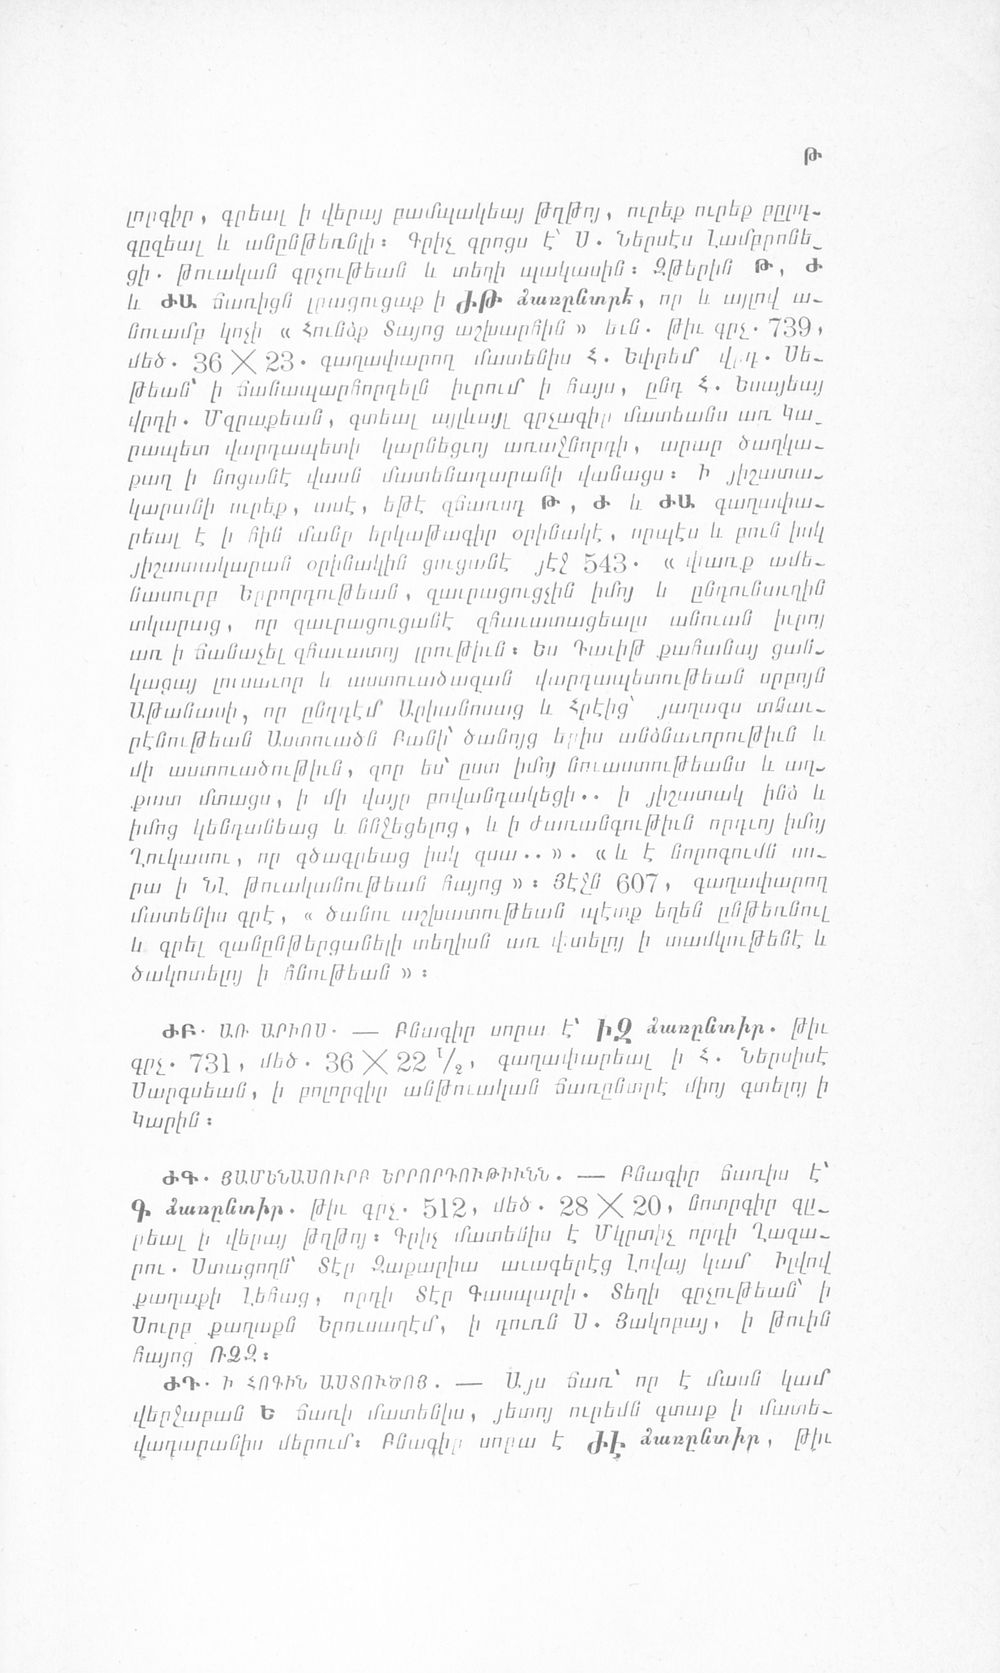 Թ
լորգիր, գրեալ ի վերայ բամպակեայ թղթոյ, ուրեք ուրեք բըլդ-
գըզեալ և անընթեռնլի։ Գրիչ գրոցս է՝ Ս. Ներսէս Լամբրոնե-
ցի. թուական գրչութեան և տեղի պակասին։ Զթերին Թ, Ժ
և ԺԱ ճառիցն լրացուցաք ի ԺԹ ճառընտրէ, որ և այլով ա-
նուամբ կոչի « Հունձք Տայոց աշխարհին » ևն. թիւ գրչ. 739,
մեծ. 36 X 23. գաղափարող մատենիս Հ. Եփրեմ վրդ. Սե-
թեան՝ ի ճանապարհորդելն իւրում ի հայս, ընդ Հ. Եսայեայ
վրդի. Մզրաքեան, գտեալ այլևայլ գրչագիր մատեանս առ Կա-
րապետ վարդապետի կարնեցւոյ առաջնորդի, արար ծաղկա-
քաղ ի նոցանէ վասն մատենադարանի վանացս։ Ի յիշատա-
կարանի ուրեք, ասէ, եթէ զճառսդ Թ, Ժ և ԺԱ գաղափա-
րեալ է ի հին մանր երկաթագիր օրինակէ, որպէս և բուն իսկ
յիշատակարան օրինակին ցուցանէ յէջ 543. « փառք ամե-
նասուրբ Երրորդութեան, զաւրացուցչին իմոյ և ընդունաւղին
տկարաց, որ զաւրացուցանէ զհաւատացեալս անուան իւրոյ
առ ի ճանաչել զհաւատոյ լրութիւն։ Ես Դաւիթ քահանայ ցան-
կացայ լուսաւոր և աստուածազան վարդապետութեան սրբոյն
Աթանասի, որ ընդդէմ Արիանոսաց և Հրէից՝ յաղագս տնաւ-
րէնութեան Աստուածն Բանի՝ ծանոյց երիս անձնաւորութիւն և
մի աստուածութիւն, զոր ես՝ ըստ իմոյ նուաստութեանս և աղ-
քատ մտացս, ի մի վայր բովանդակեցի.. ի յիշատակ ինձ և
իմոց կենդանեաց և ննջեցելոց, և ի ժառանգութիւն որդւոյ իմոյ
Ղուկասու, որ գծագրեաց իսկ զսա.. ». « և է նորոգումն սո-
րա ի ՆԼ թուականութեան հայոց »։ Յէջն 607, գաղափարող
մատենիս գրէ, « ծանու աշխատութեան պէտք եղեն ընթեռնուլ
և գրել զանընթերցանելի տեղիսն առ վտելոյ ի տամկութենէ և
ծակոտելոյ ի հնութեան »։
ԺԲ. ԱՌ ԱՐԻՈՍ. — Բնագիր սորա է՝ ԻԶ ճառընտիր. թիւ
գրչ. 731, մեծ. 36 X 22 1/2, գաղափարեալ ի Հ. Ներսիսէ
Սարգսեան, ի բոլորգիր անթուական ճառընտրէ միոյ գտելոյ ի
Կարին։
ԺԳ. ՅԱՄԵՆԱՍՈՒՐԲ ԵՐՐՈՐԴՈՒԹԻՒՆՆ. — Բնագիր ճառիս է՝
Գ ճառընտիր. թիւ գրչ. 512, մեծ. 28 X 20, նոտրգիր գը-
րեալ ի վերայ թղթոյ։ Գրիչ մատենիս է Մկրտիչ որդի Ղազա-
րու. Ստացողն՝ Տէր Զաքարիա աւագերէց Լովայ կամ Իլվով
քաղաքի Լեհաց, որդի Տէր Գասպարի. Տեղի գրչութեան՝ ի
Սուրբ քաղաքն Երուսաղէմ, ի դուռն Ս. Յակոբայ, ի թուին
հայոց ՌԶԶ։
ԺԴ. Ի ՀՈԳԻՆ ԱՍՏՈՒԾՈՅ. — Այս ճառ՝ որ է մասն կամ
վերջաբան Ե ճառի մատենիս, յետոյ ուրեմն գտաք ի մատե-
վադարանիս մերում։ Բնագիր սորա է ԺԻ ճառընտիր, թիւ